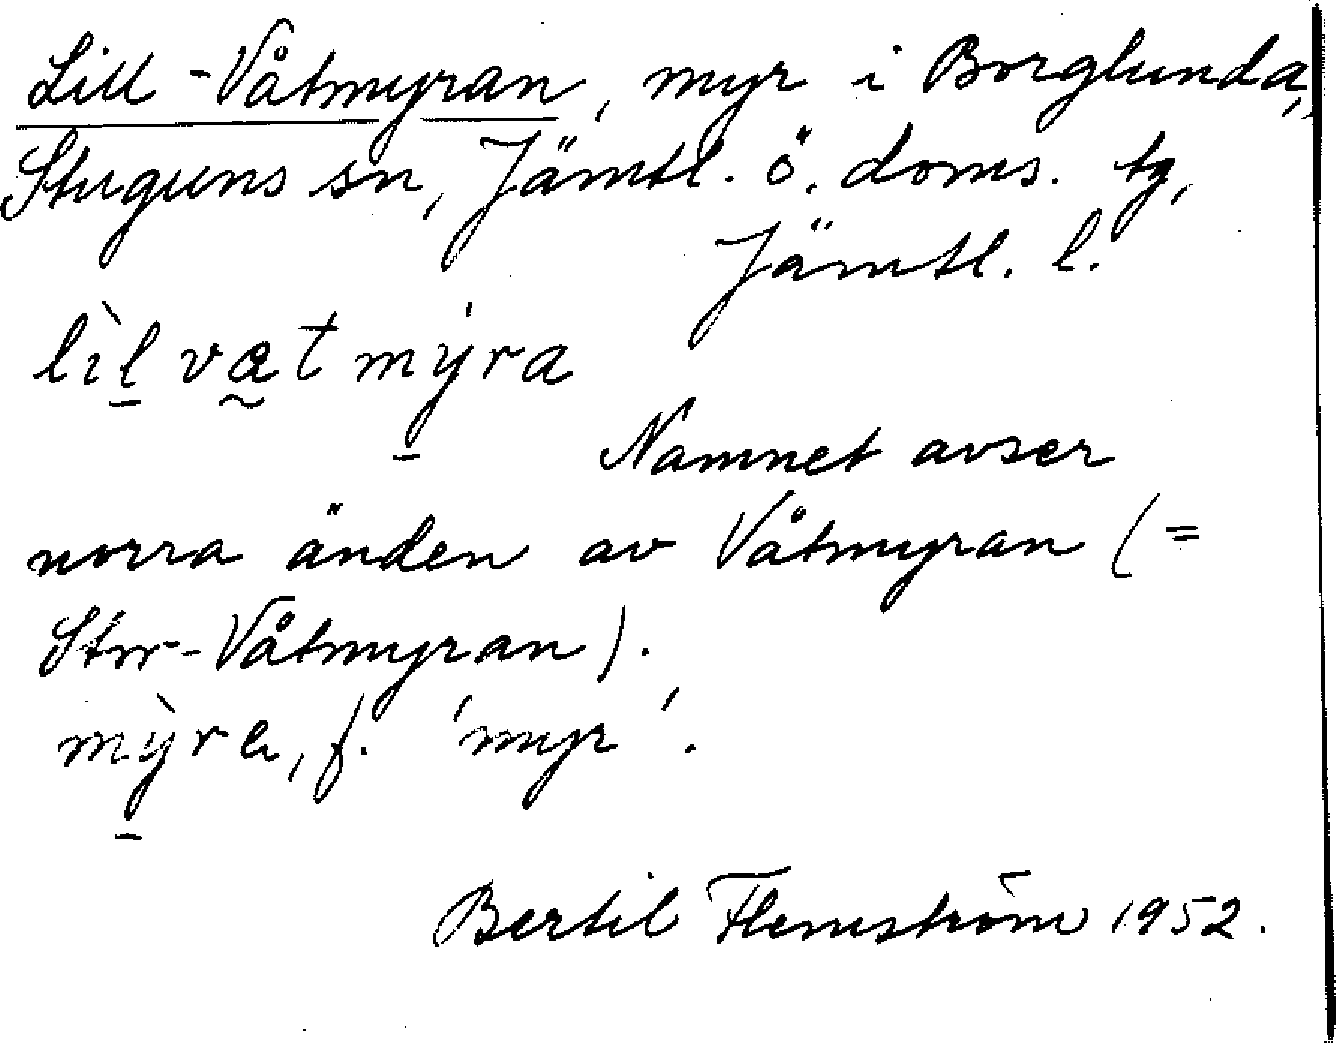 Lill-Våtmyran, myr i Borglunda,
Stuguns sn, Jämtl. ö. doms. tg,
Jämtl. l.
lìl̠ væ̰t mẏ̠ra
Namnet avser
norra änden av Våtmyran (=
Stor-Våtmyran).
mỳ̠ra, f. 'myr'.
Bertil Flemström 1952.